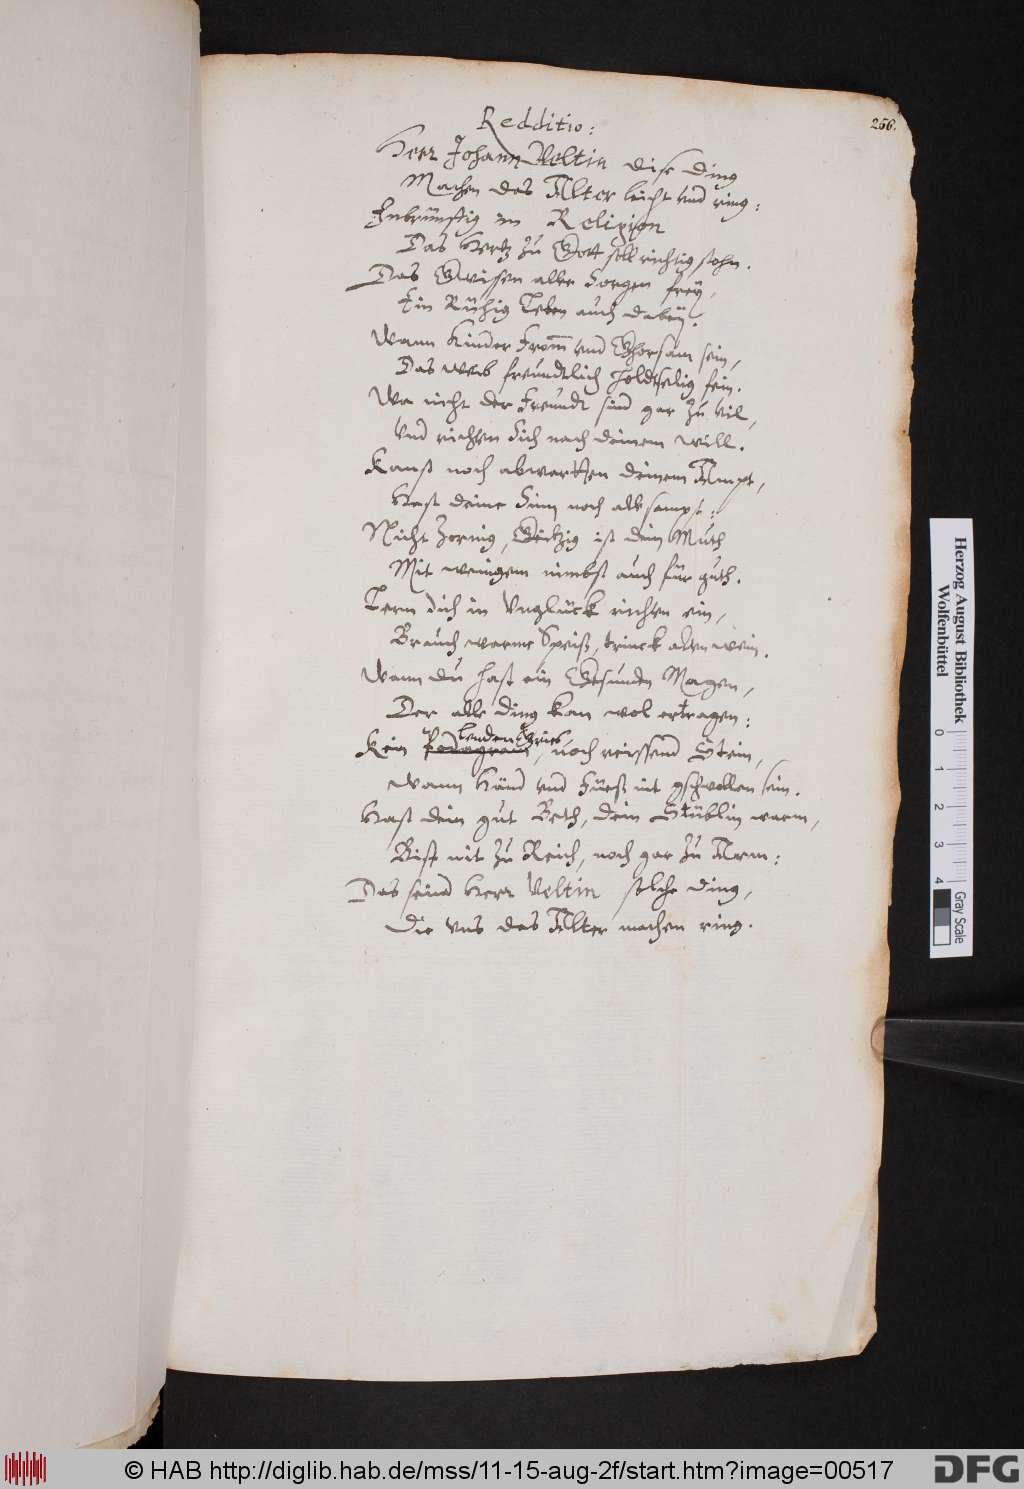 256.
Redditio:
Herr Johann Veltin dise ding
Machen das Alter leicht vnd ring:
Inbrünstig in Religion
Das Hertz zu Gott soll richtig stohn.
Das Gwissen aller Sorgen frey,
Ein Rühig Leben auch dabey.
Wann Kinder From vnd Ghorsam sein,
Das Weib freundtlich holdtselig fein.
Wa nicht der Freundt sind gar zu vil,
Vnd richten Sich nach deinem will.
Kanst noch abwartten deinem Ampt,
Hast deine Sinn noch alle sampt:
Nicht Zornig, Geitzig ist dein Muth
Mit wenigem nimbst auch für guth.
Lern dich in Vnglück richten ein,
Brauch warme Speiß, trinck alten wein.
Wann du hast ein Gesunden Magen,
Der alle ding kan wol ertragen:
Lenden Gries
Kein Podagram, noch reissend Stein,
Wann Händ vnd Füeß nit gschwollen sein.
Hast dein gut Beth, dein Stüblin warm,
Bist nit zu Reich, noch gar zu Arm:
Das seind Herr Veltin solche ding,
Die vns das Alter machen ring.
Herzog August Bibliothek
Wolfenbüttel
0 1 2 3 4
Gray Scale
© HAB http://diglib.hab.de/mss/11-15-aug-2f/start.htm?image=00517
DFG